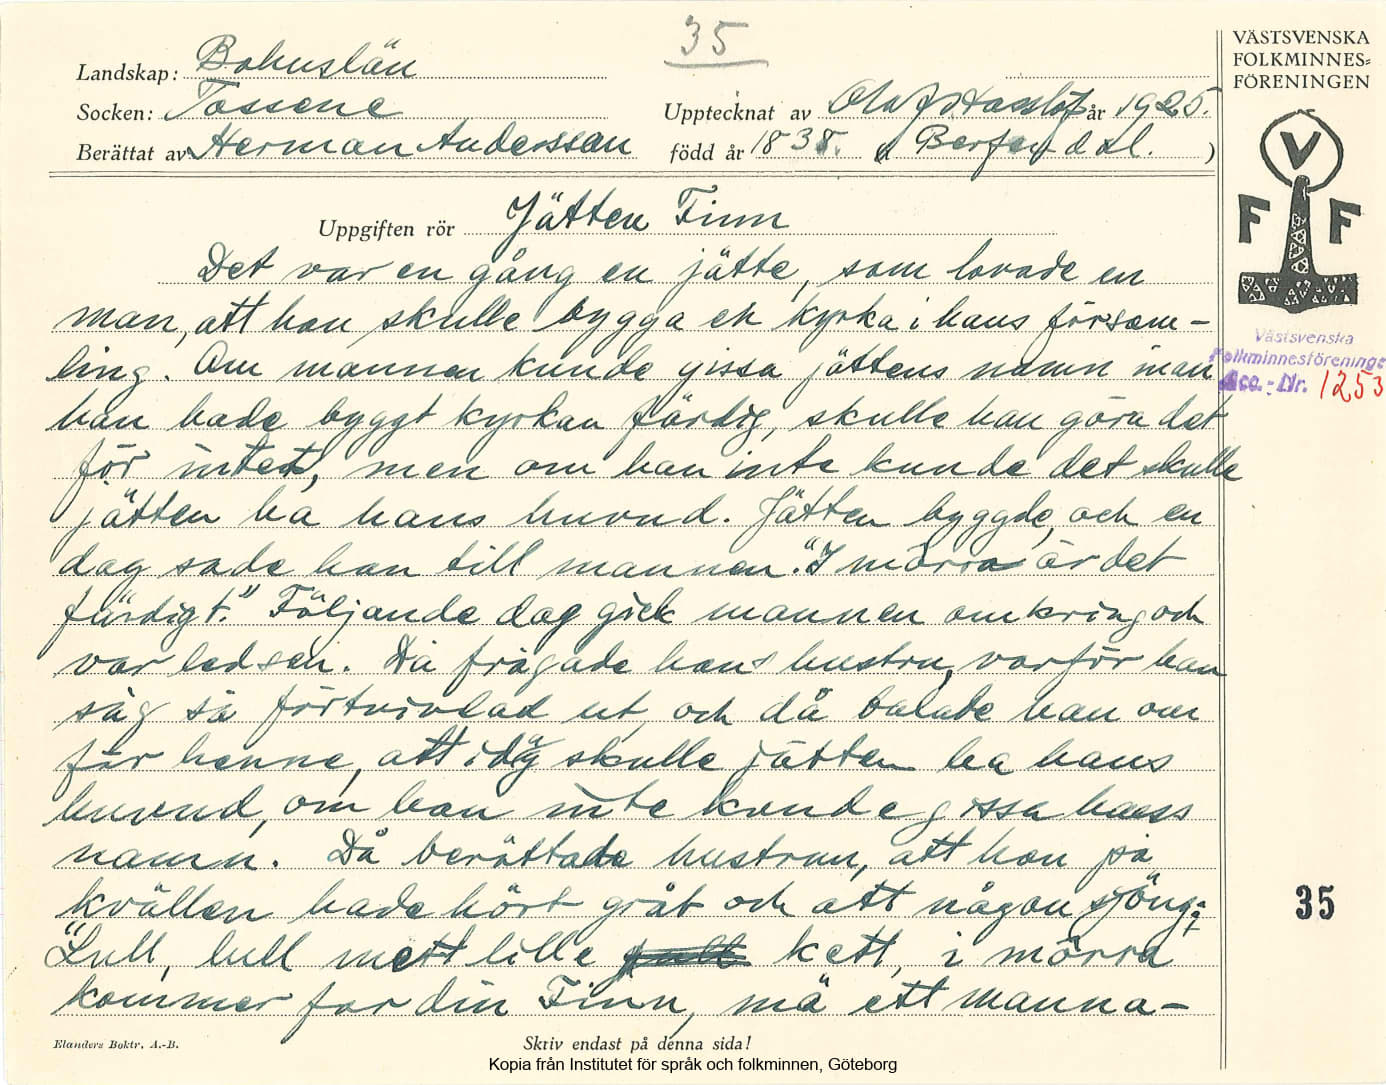 35
VÄSTSVENSKA
FOLKMINNES=
FÖRENINGEN
Landskap: Bohuslän
Socken: Tossene
Upptecknat av Olof Hasslöf år 1925.
Berättat av Herman Andersson
född år 1838. i Berfendal. )
V
F F
Uppgiften rör Jätten Finn
Det var en gång en jätte, som lovade en
man, att han skulle bygga en kyrka i hans försam-
ling. Om mannen kunde gissa jättens namn innan
han hade byggt kyrkan färdig, skulle han göra det
för intet, men om han inte kunde det skulle
jätten ha hans huvud. Jätten byggde, och en
dag sade han till mannen. "I mörra är det
färdigt." Följande dag gick mannen omkring och
var ledsen. Då frågade hans hustru, varför han
såg så förtvivlad ut, och då talade han om
för henne, att idag skulle jätten ha hans
huvud, om han inte kunde gissa hans
namn. Då berättade hustrun, att hon på
kvällen hade hört gråt och att någon sjöng:
"Lull, lull mett lille kett, i mörra
kommer far din Finn, mä ett manna-
Västsvenska
Folkminnesföreninge
Acc.-Nr. 1253
35
Elanders Boktr. A.-B.
Skriv endast på denna sida!
Kopia från Institutet för språk och folkminnen, Göteborg